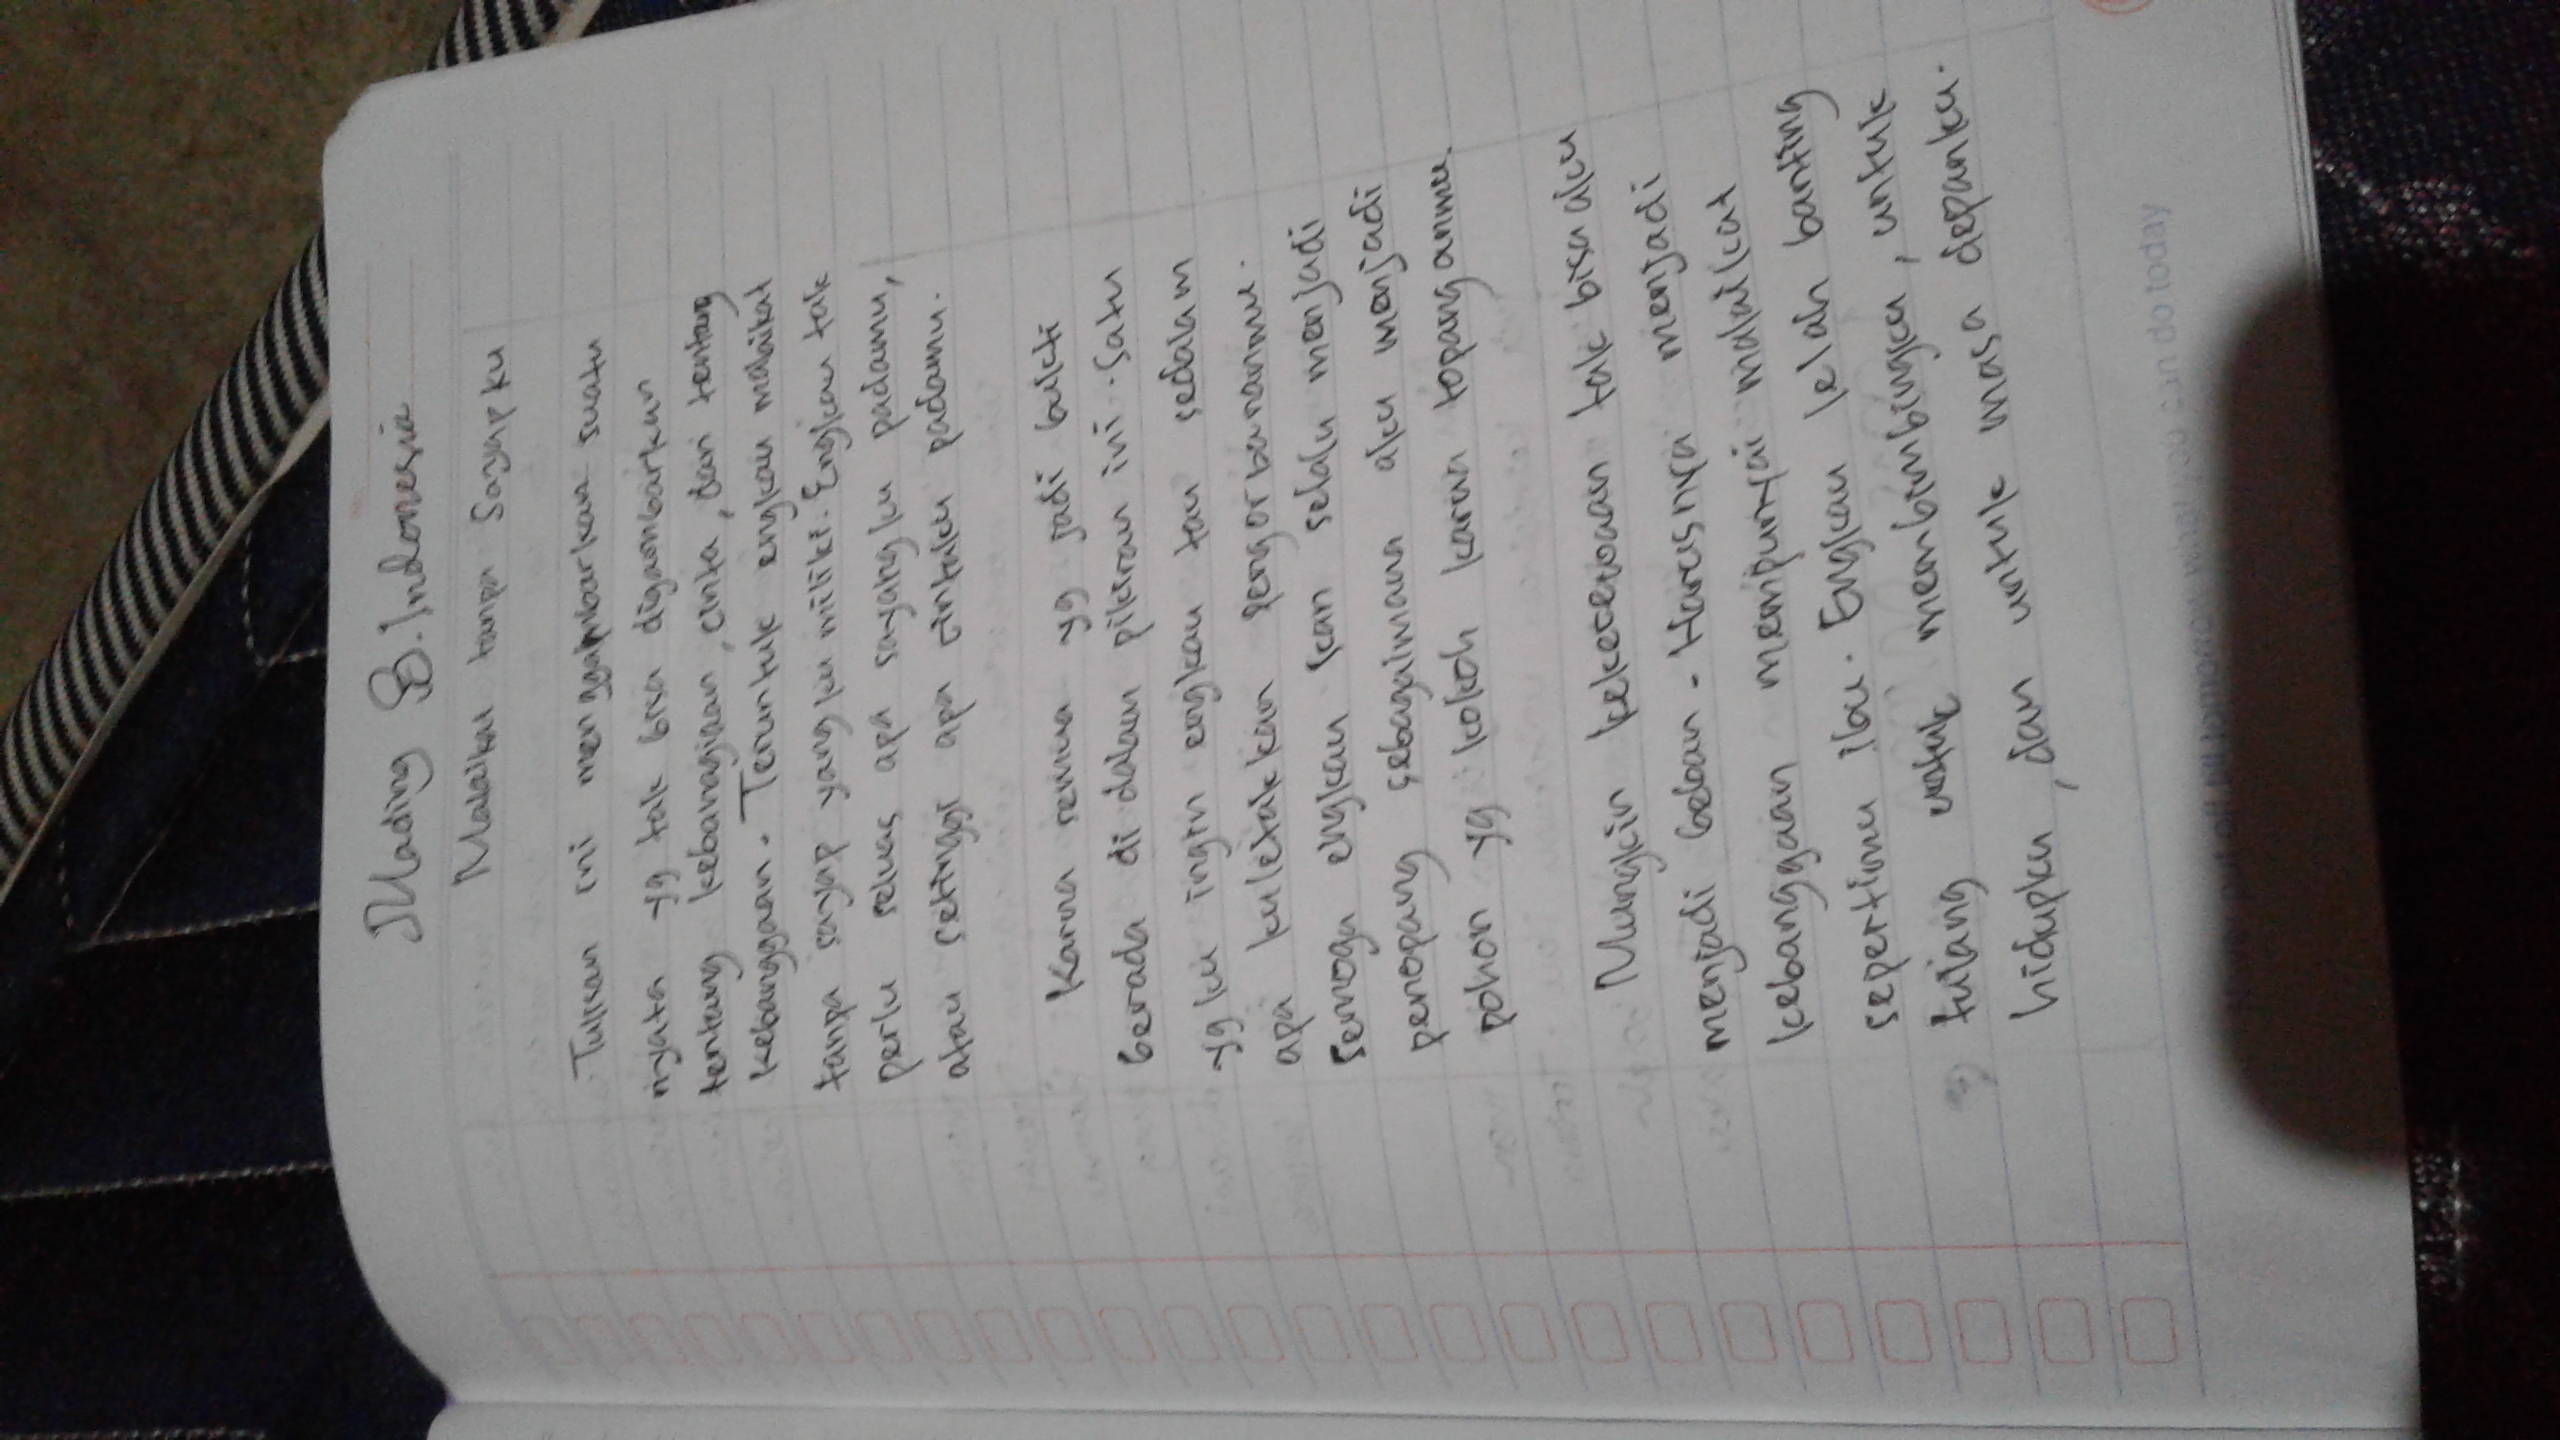 Mading B. Indonesia
Malaikat tanpa Sayapku
Tulisan ini menggambarkan suatu
nyata yg tak bisa digambarkan
tentang kebahagiaan, cinta, dan tentang
kebanggaan. Teruntuk engkau malaikat
tanpa sayap yang ku miliki. Engkau tak
perlu seluas apa sayangku padamu,
atau setinggi apa cintaku padamu.
Karna semua yg jadi bukti
berada di dalam pikiran ini. Satu
yg ku ingin engkau tau sedalam
apa kuletakkan pengorbananmu.
Semoga engkau kan selalu menjadi
penopang sebagaimana aku menjadi
pohon yg kokoh karan topanganmu.
Mungkin kekecewaan tak bisa aku
menjadi beban. Harusnya menjadi
kebanggaan mempunyai malaikat
sepertimu ibu. Engkau lelah banting
tulang untuk membimbingku, untuk
hidupku, dan untuk masa depanku.
can do today